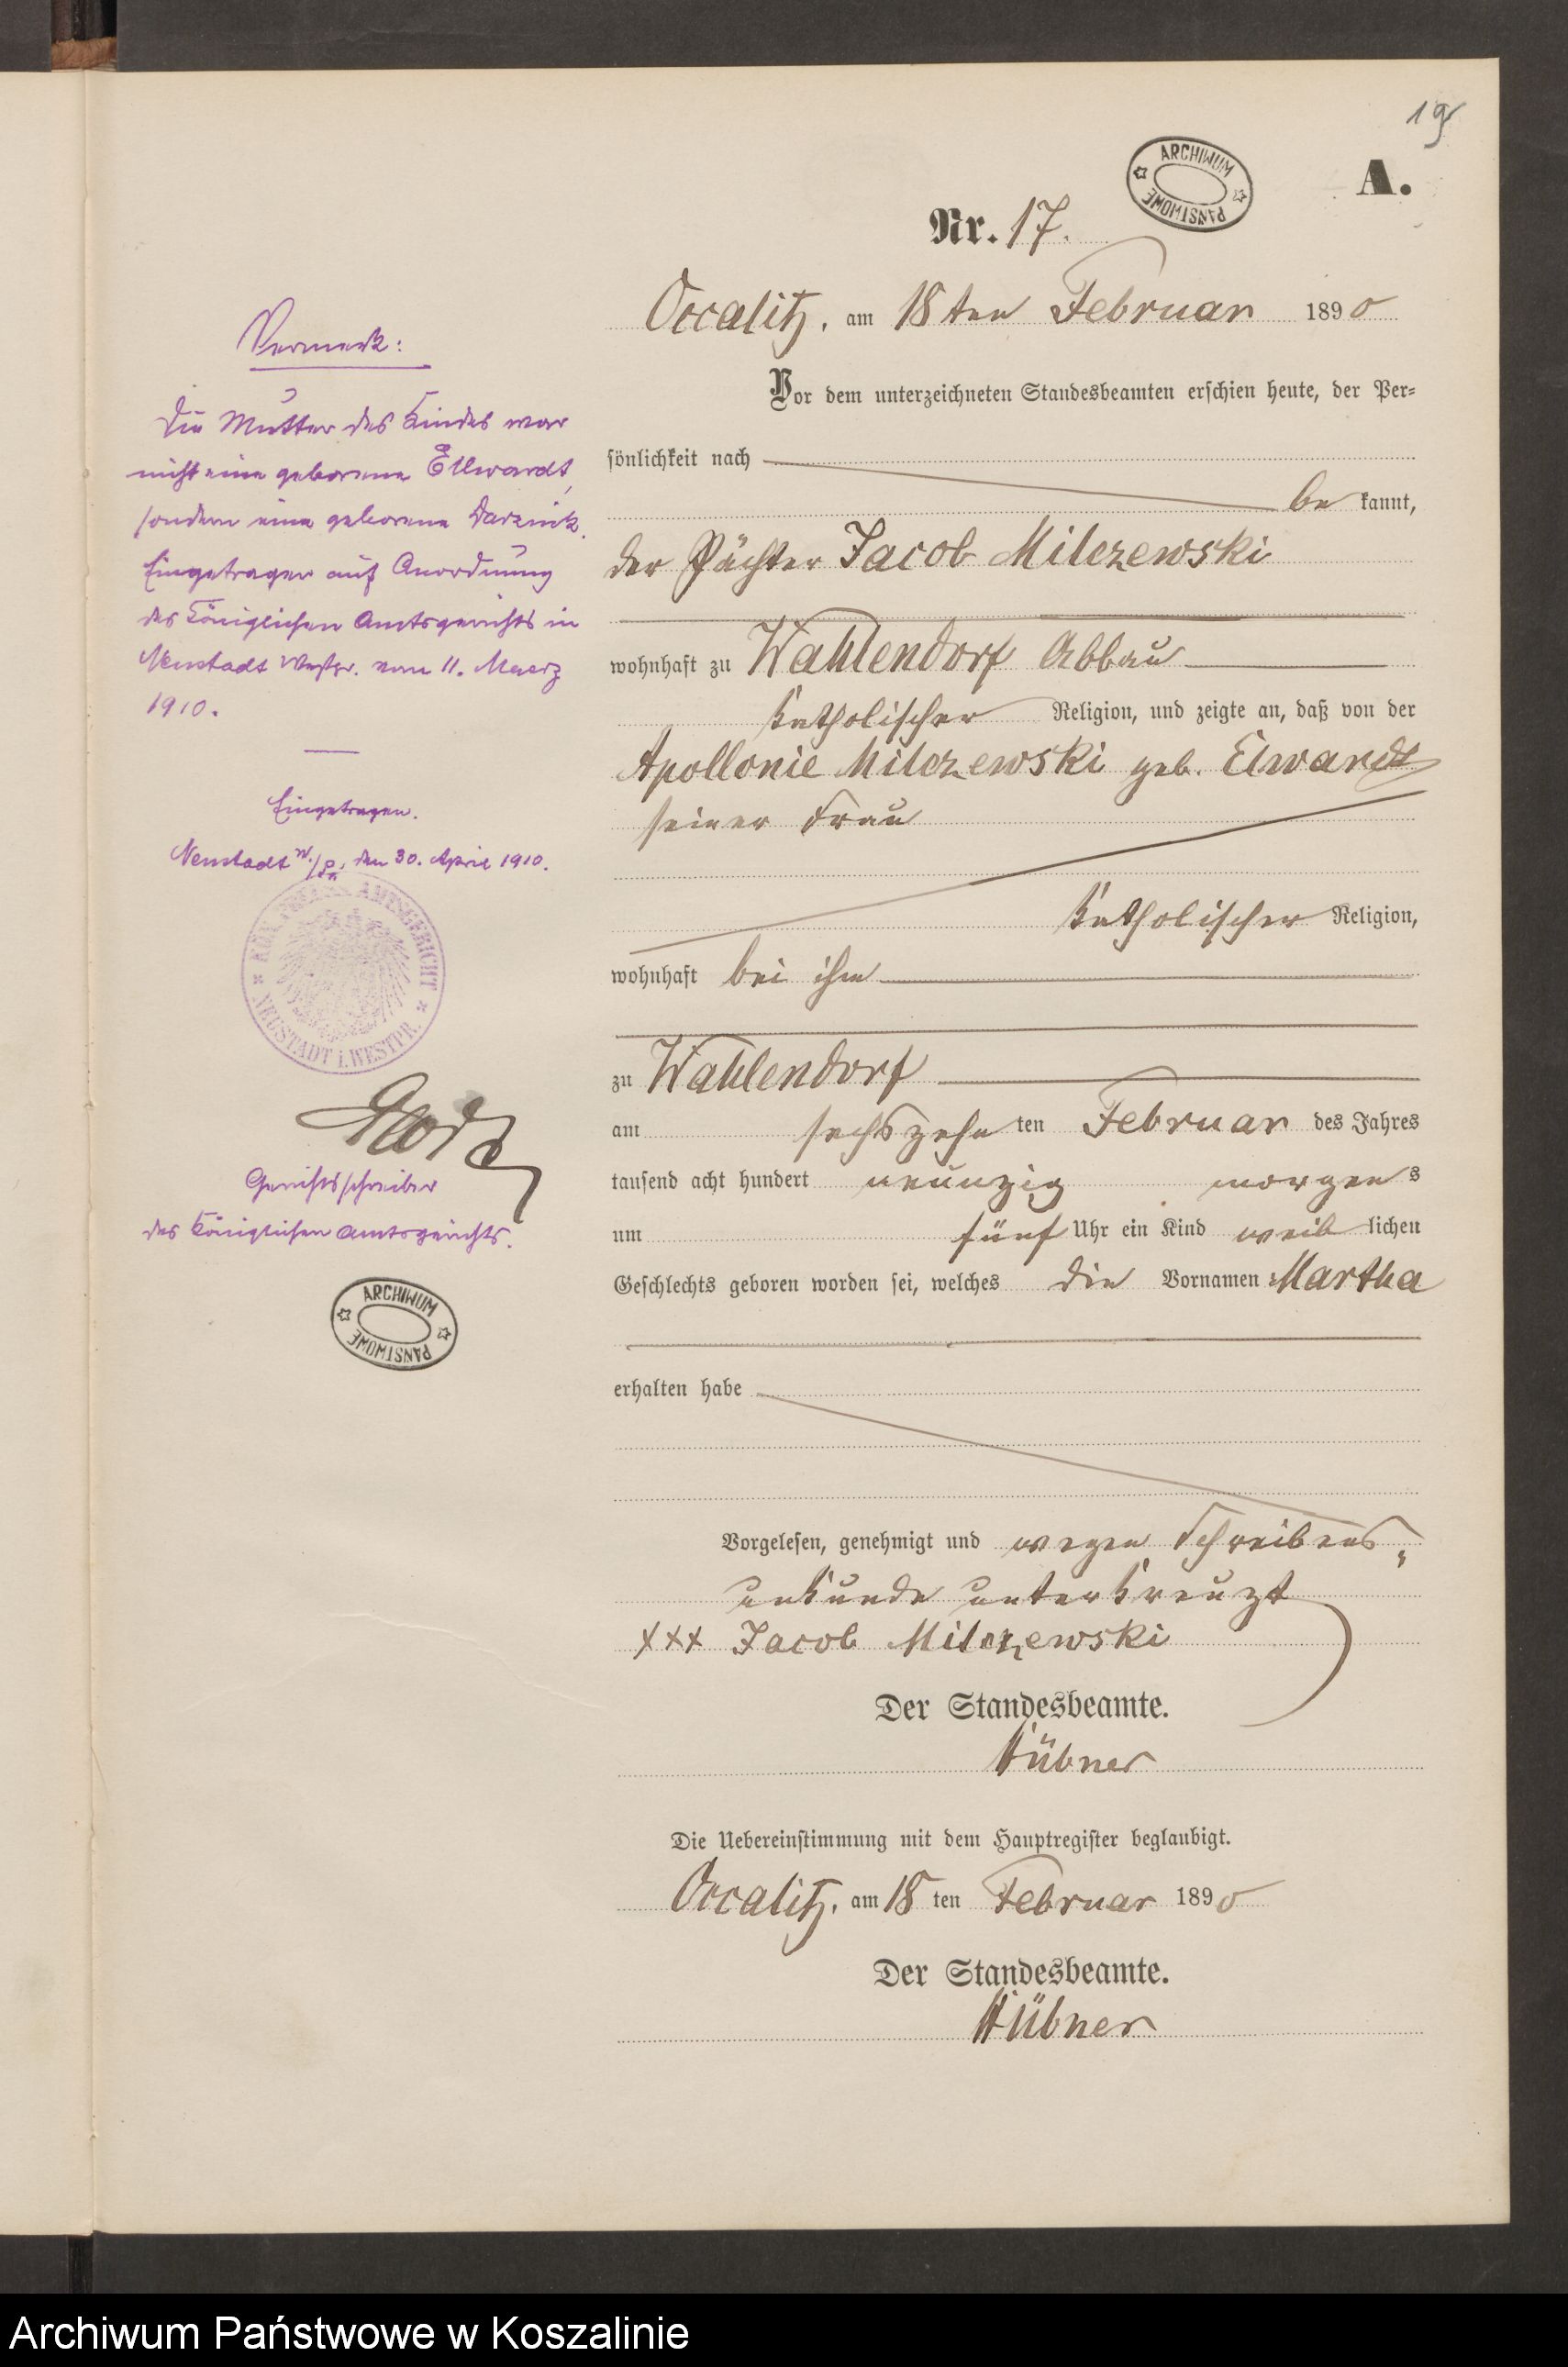 19
A.
ARCHIWUM PAŃSTWOWE
Nr. 17.
Occalitz, am 18ten Februar 1890
Vor dem unterzeichneten Standesbeamten erschien heute, der Per-
sönlichkeit nach
be kannt,
der Pächter Jacob Milczewski
wohnhaft zu Wahlendorf Abbau
katholischer Religion, und zeigte an, daß von der
Apollonie Milczewski geb. Elwardt
seiner Frau
katholischer Religion,
wohnhaft bei ihm
zu Wahlendorf
am sechszehn ten Februar des Jahres
tausend acht hundert neunzig morgens
um fünf Uhr ein Kind weib lichen
Geschlechts geboren worden sei, welches die Vornamen Martha
erhalten habe
Vorgelesen, genehmigt und wegen Schreibens-
unkunde unterkreuzt
xxx Jacob Milczewski
Der Standesbeamte.
Hübner
Die Uebereinstimmung mit dem Hauptregister beglaubigt.
Occalitz, am 18 ten Februar 1890
Der Standesbeamte.
Hübner
Vermerk:
Die Mutter des Kindes war
nicht eine geborene Ellwardt,
sondern eine geborene Darznik.
Eingetragen auf Anordnung
des Königlichen Amtsgerichts in
Neustadt Westpr. vom 11. Maerz
1910.
Eingetragen.
Neustadt W./Pr. den 30. April 1910.
KÖN. PREUSS. AMTSGERICHT
NEUSTADT i. WESTPR.
Gerichtsschreiber
des Königlichen Amtsgerichts.
ARCHIWUM PAŃSTWOWE
Archiwum Państwowe w Koszalinie